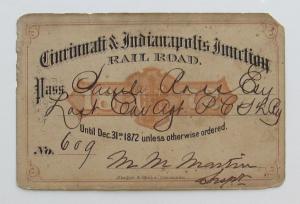 Cincinnati & Indianapolis Junction
RAIL ROAD.
Pass Esq
Car Agt
Until Dec. 31st 1872 unless otherwise ordered.
No. 609 M. M. Martin
Supt